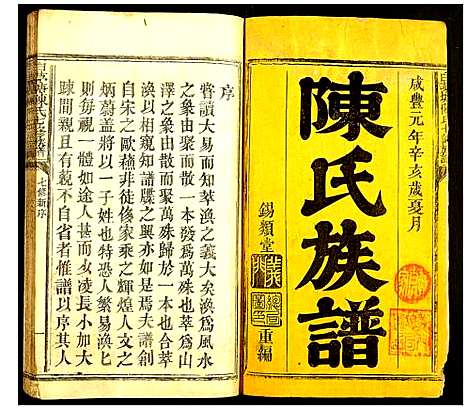 咸豐元年辛亥歲夏月
陳氏族譜
錫類堂
重編
序
嘗讀大易而知萃渙之義大矣渙為風水
之象由萃而散一本為萬殊也萃為山
澤之象由散而聚萬殊歸於一本也合萃
渙以相度知譜牒之興亦如是焉夫譜創
自宋之歐蘇非徒侈家乘之輝煌人文之
炳蔚蓋將以一子姓也特恐人繁易渙七
則每視一體如途人甚而以幼凌長小大
踈間親且有藐不自省者惟譜以序其人
七修新序
一